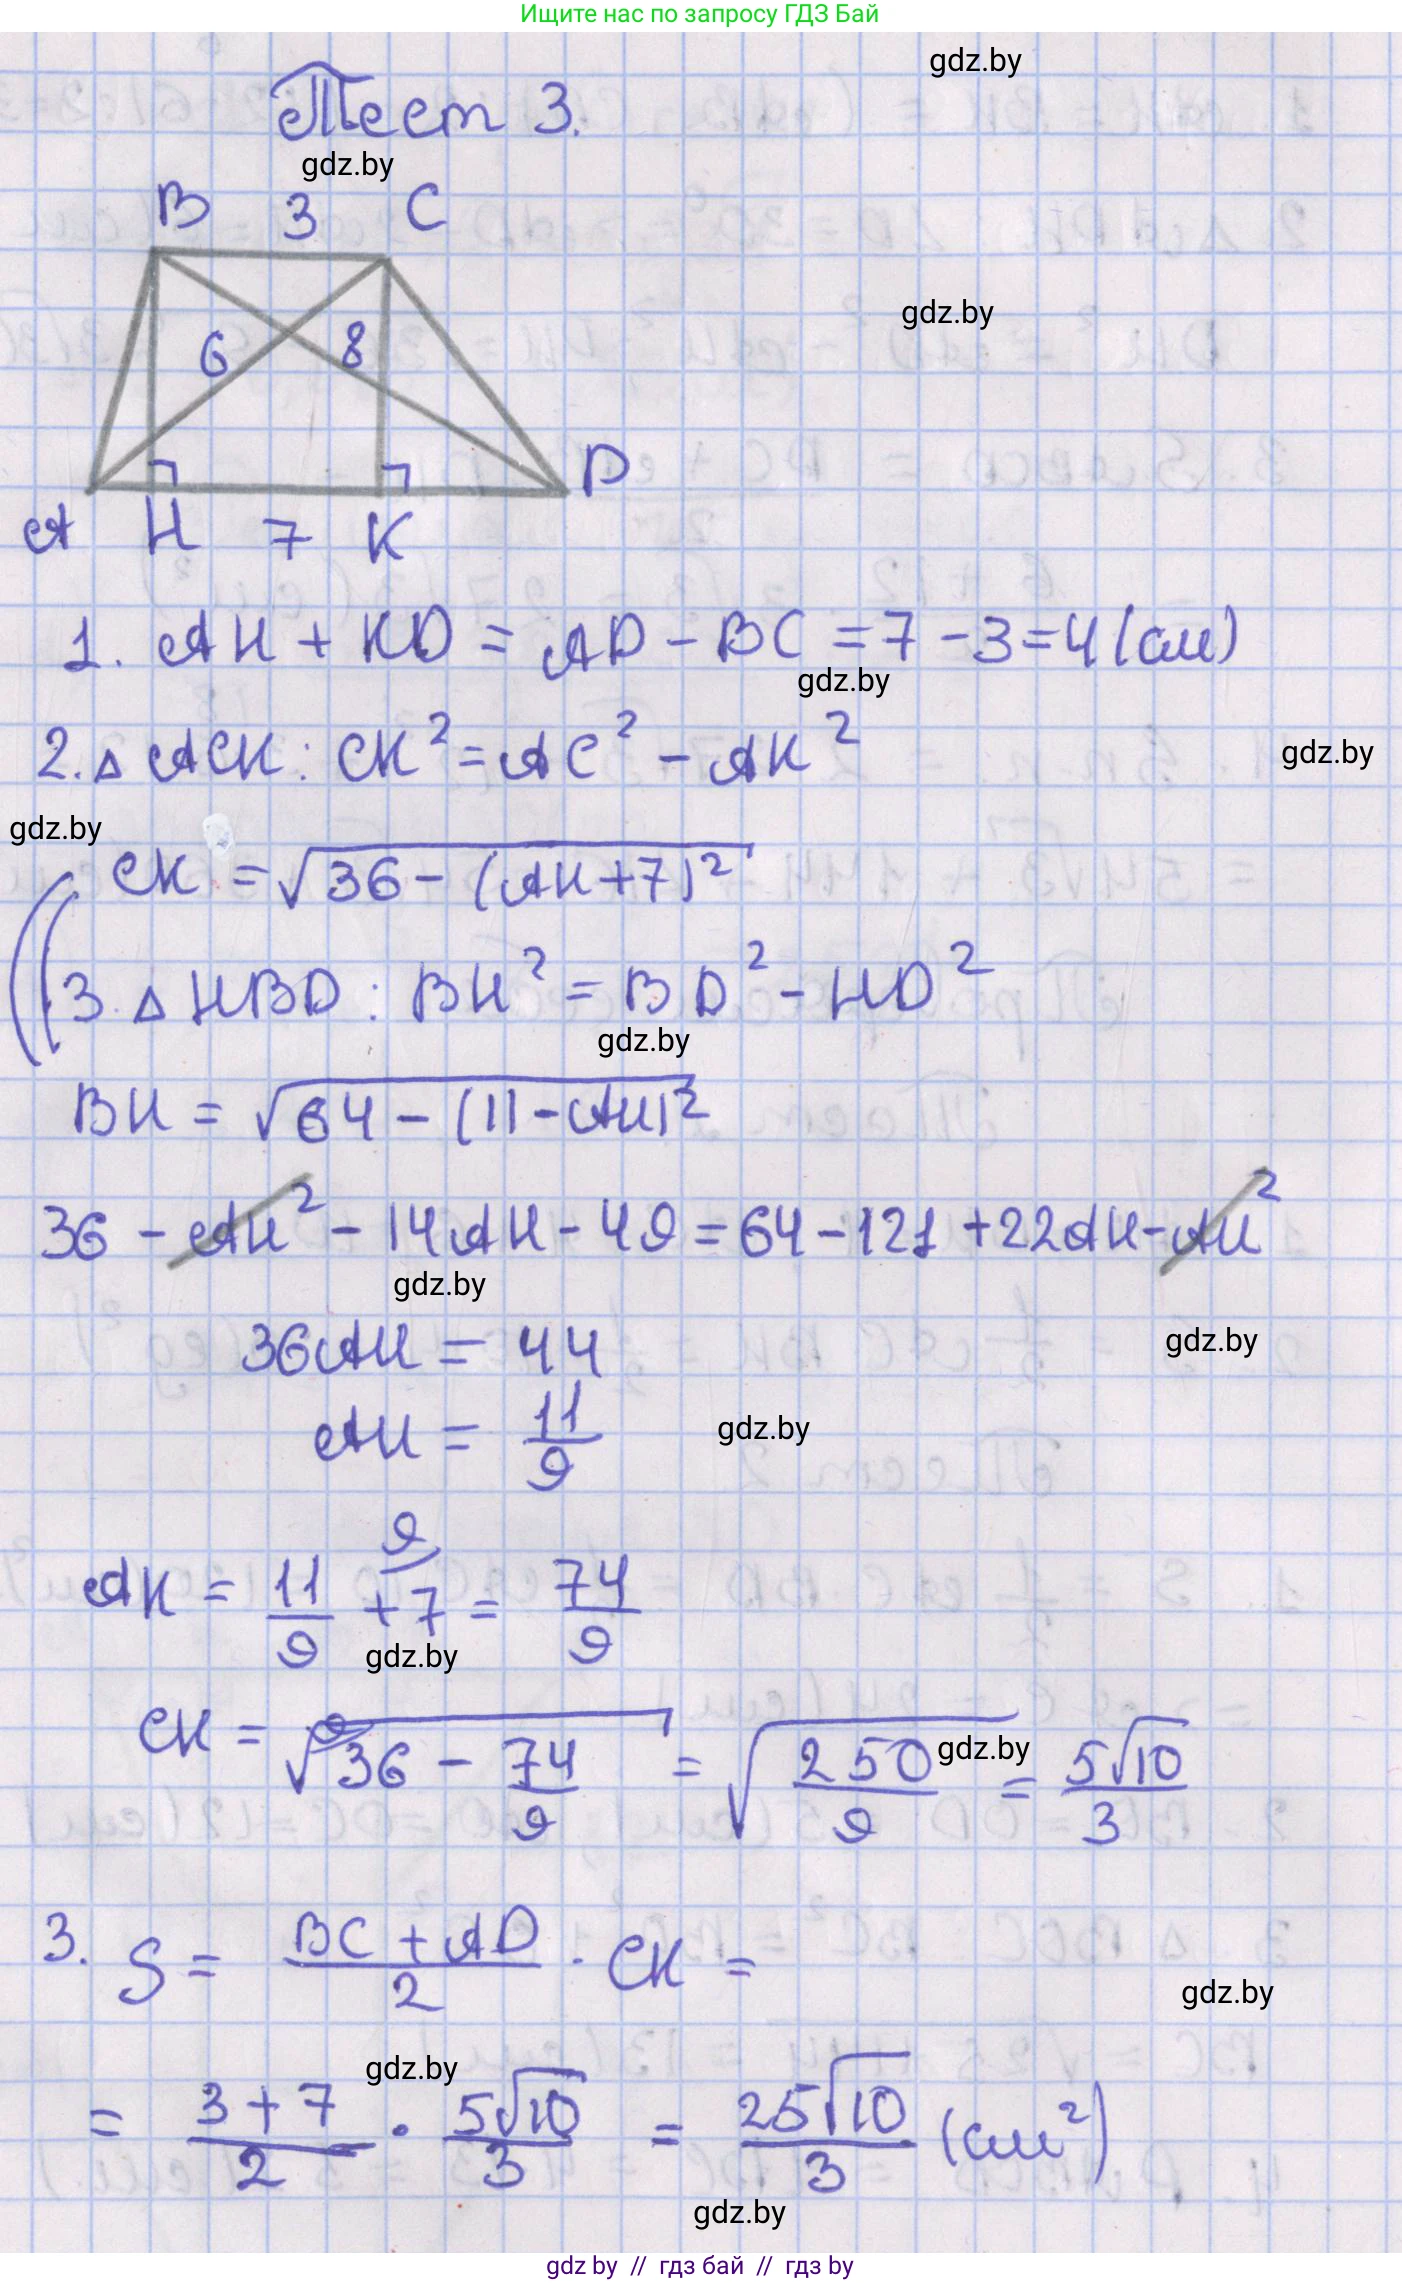 Ищите нас по запросу ГДЗ Бай
gdz.by
Тест 3.
gdz.by
B 3 C
gdz.by
6 8
D
A H 7 K
1. AH + KD = AD - BC = 7 - 3 = 4 (см)
gdz.by
2. △ ACK : CK² = AC² - AK²
gdz.by
gdz.by
CK = √36 - (AH+7)²
3. △ HBD : BH² = BD² - HD²
gdz.by
BH = √64 - (11 - AH)²
36 - AH² - 14AH - 49 = 64 - 121 + 22AH - AH²
gdz.by
36AH = 44
gdz.by
AH = 11/9
gdz.by
AK = 11/9 + 7 ⁹ = 74/9
gdz.by
CK = √⁹36 - 74/9 = √250/9 = 5√10/3
gdz.by
3. S = BC + AD/2 · CK =
gdz.by
gdz.by
= 3+7/2 · 5√10/3 = 25√10/3 (см²)
gdz.by
gdz by // гдз бай // гдз by